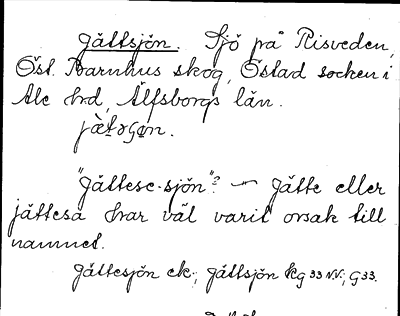 Jättsjön. Sjö på Risveden,
Öst. Barnhus skog, Östad socken i
Ale hrd, Älfsborgs län.
"Jättese-sjön"? — Jätte eller
jättesa har väl varit orsak till
namnet.
Jättesjön ek.; Jättsjön kg 33 NV.; G 33.